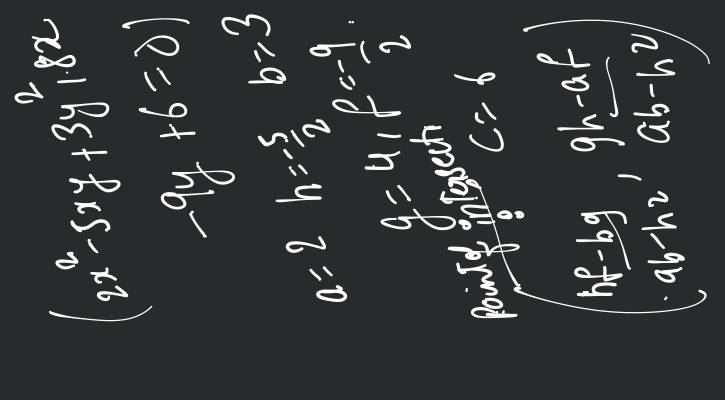 (2x² - 5xy + 3y² + 8x
- 9y + 6 = 0)
a = 2 h = -5/2 b = 3
g = 4, f = -9/2
c = 6
point of intersection :
(hf - bg / ab - h², gh - af / ab - h²)